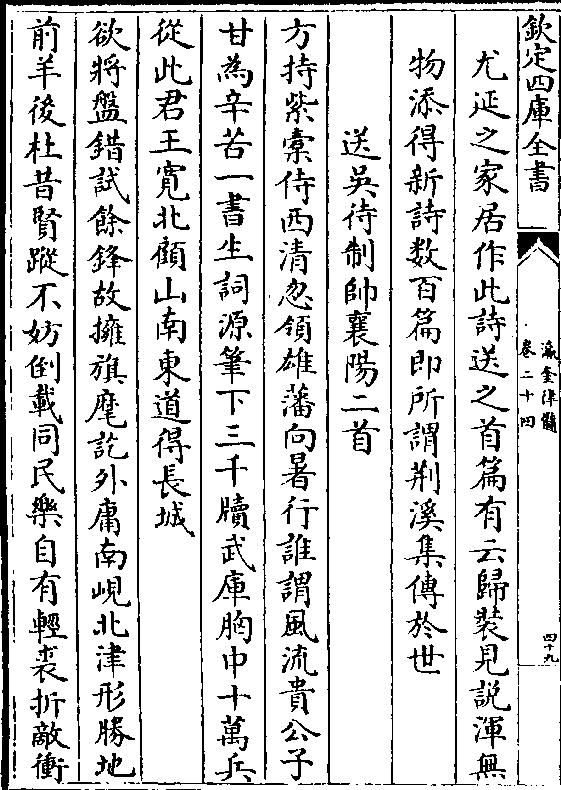 欽定四庫全書
瀛奎律髓
卷二十四
四十九
尤延之家居作此詩送之首篇有云歸裝見説渾無
物添得新詩数百篇即所謂荆溪集傳於世
送吳待制帥襄陽二首
方持紫橐侍西清忽領雄藩向暑行誰謂風流貴公子
甘為辛苦一書生詞源筆下三千牘武庫胸中十萬兵
從此君王寛北顧山南東道得長城
欲將盤錯試餘鋒故擁旗麾訖外庸南峴北津形勝地
前羊後杜昔賢蹤不妨倒載同民樂自有輕裘折敵衝